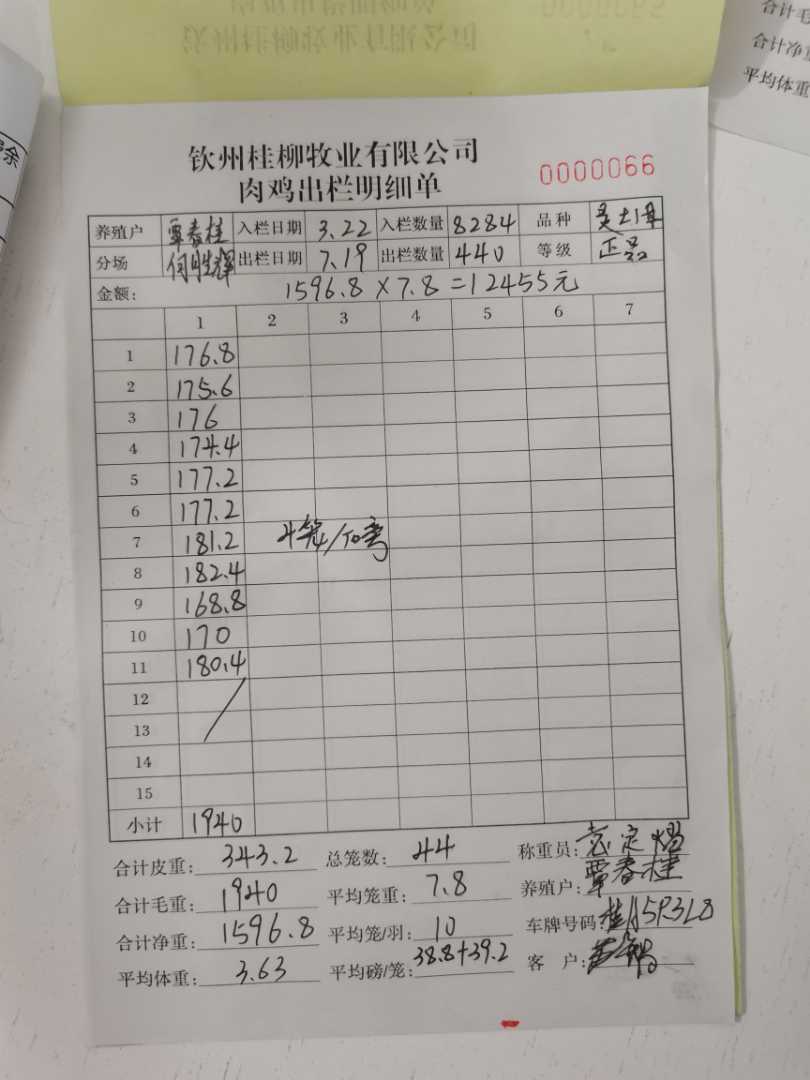 钦州桂柳牧业有限公司
肉鸡出栏明细单
0000066
养殖户 覃春桂 入栏日期 3.22 入栏数量 8284 品种 灵土1母
分场 何胜辉 出栏日期 7.19 出栏数量 440 等级 正品
金额: 1596.8×7.8=12455元
1 2 3 4 5 6 7
1 176.8
2 175.6
3 176
4 174.4
5 177.2
6 177.2
7 181.2 4笼/
8 182.4
9 168.8
10 170
11 180.4
12
13
14
15
小计 1940
合计皮重: 343.2 总笼数: 44 称重员: 袁定
合计毛重: 1940 平均笼重: 7.8 养殖户: 覃春桂
合计净重: 1596.8 平均笼/羽: 10 车牌号码: 桂A5R3L8
平均体重: 3.63 平均磅/笼: 38.8+39.2 客 户:
合计毛
合计净重
平均体重